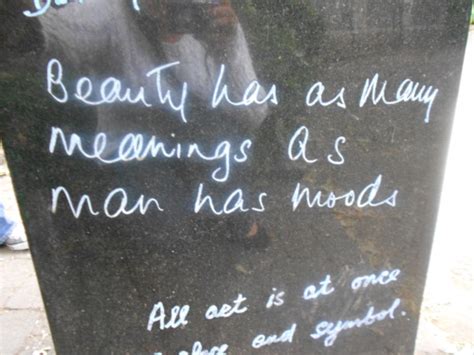 Beauty has as many
meanings as
man has moods
All art is at once
and symbol.